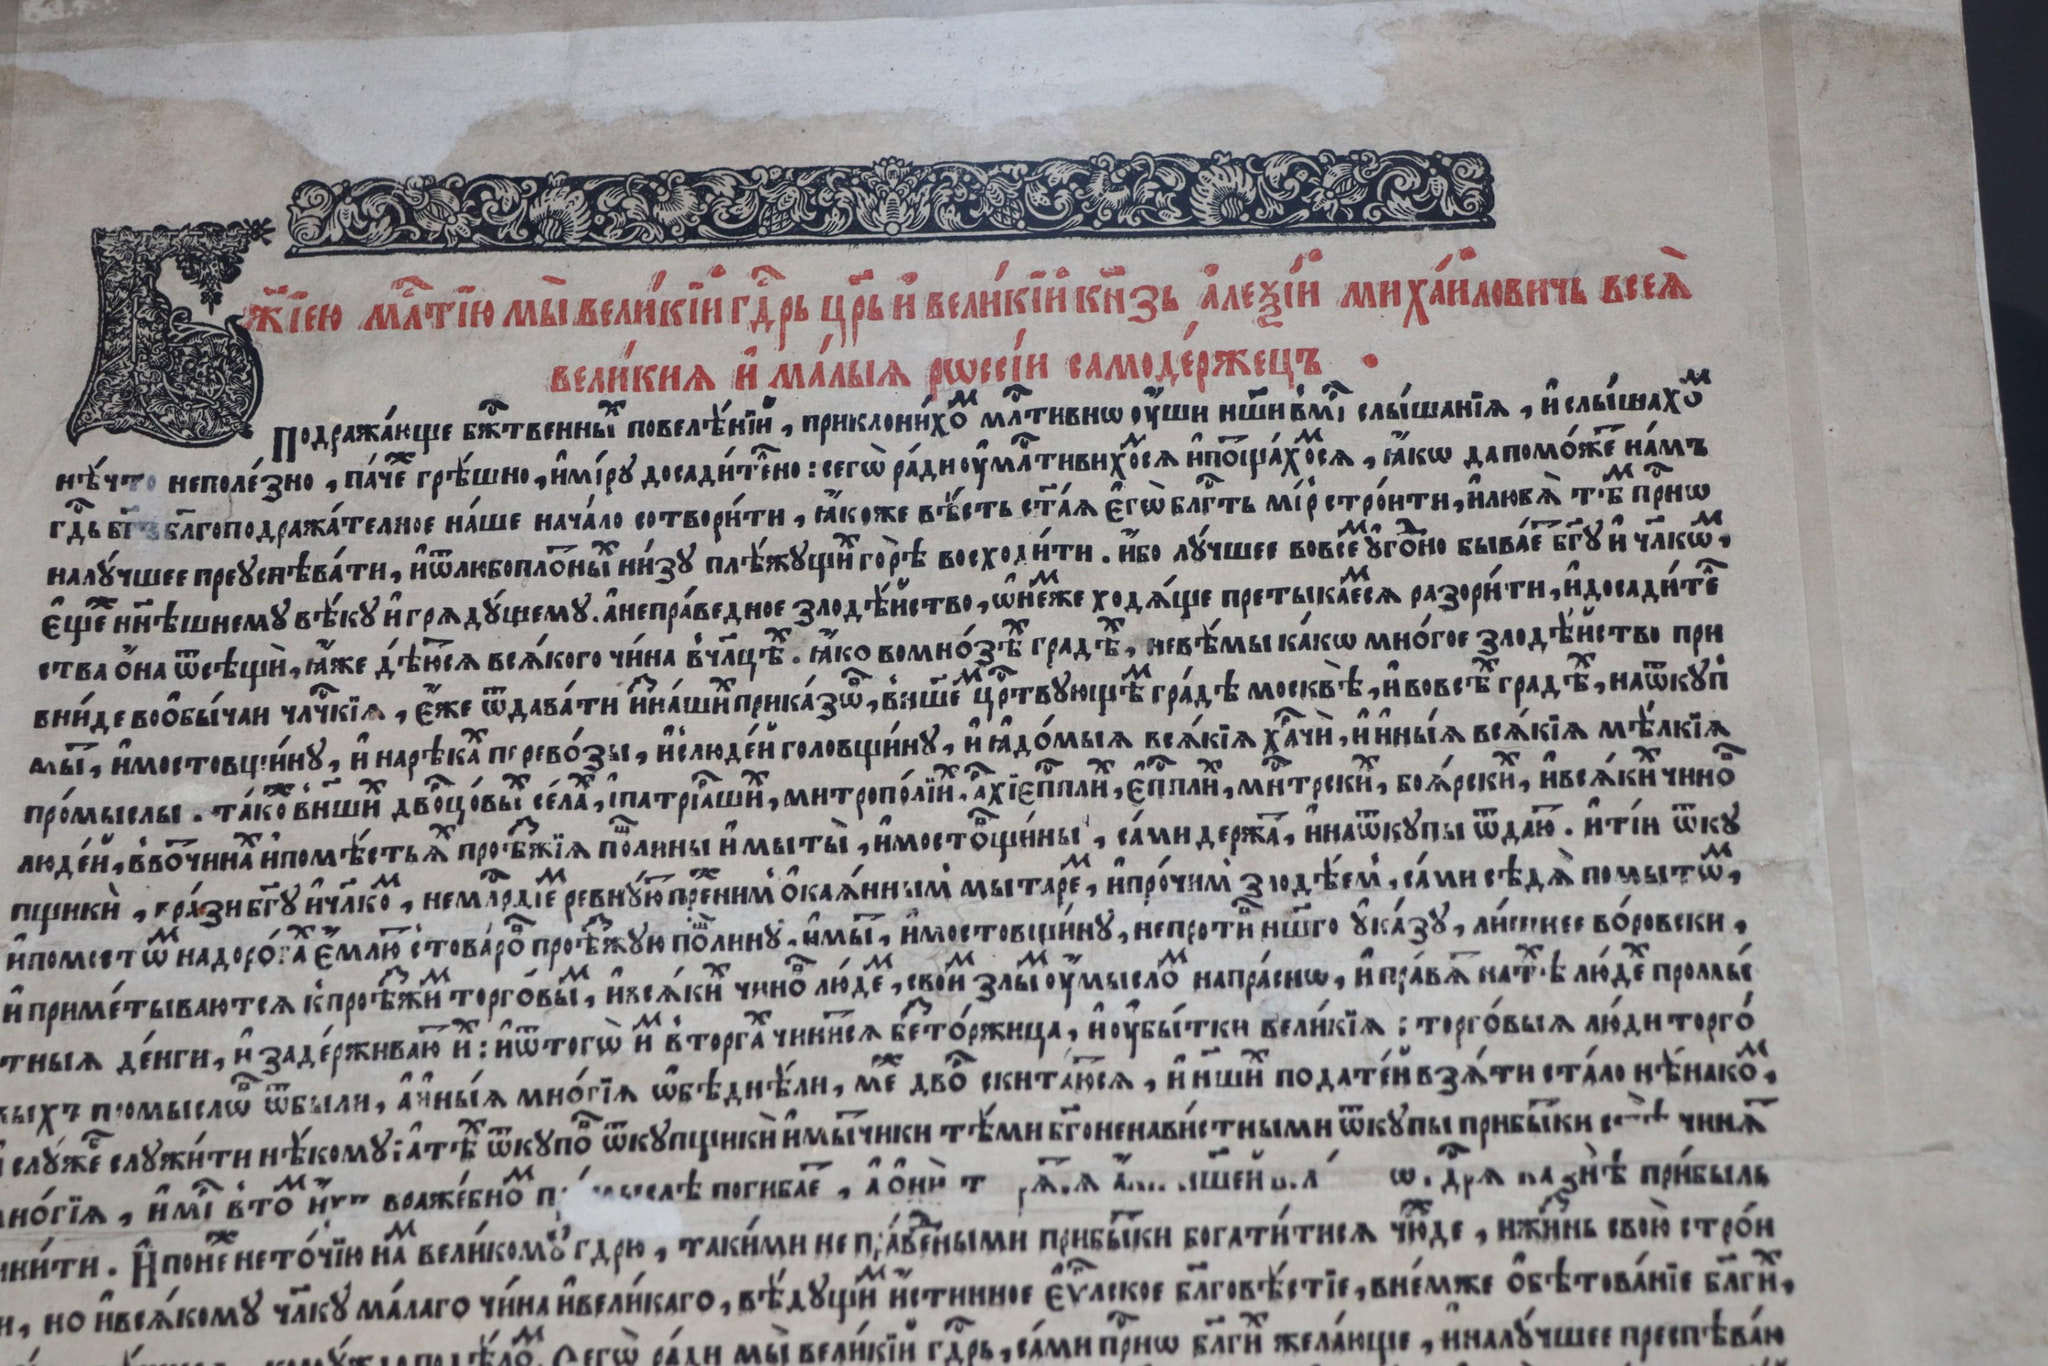 Бж҃їею мл҇тїю мы̀ вели́кїй гдⷭ҇рь цр҃ь и҆ вели́кїй кн҃зь а҆леѯі́й миха́йловичь всеѧ̀
вели́кия и҆ ма́лыѧ рѡссі́и самоде́ржецъ .
Подража́юще бж҇твенныⷯ повелѣ́нїй , приклони́хоⷨ мл҇тивнѡ оу҆́ши нш҃и вмⷣ҇ слы́шанїѧ , и҆ слы́шахоⷨ
нѣ́что неполе́зно , па́чеⷤ грѣ́шно , и҆мі́ру досади́те҇но : сегѡ̀ ра́ди оу҆мл҇тивихоⷨсѧ и҆по҇ща́хоⷨсѧ , ꙗ҆́кѡ да помо́жеⷮ на́мъ
гдⷭ҇ь бг҃ъ бл҃гоподража́телное на́ше нача́ло сотвори́ти , ꙗ҆́коже вѣ́сть ст҃а́ѧ є҆гѡ̀ блгⷣ҇ть мі́р стро́ити , и҆любѧ̀ тѣⷨ прⷭ҇нѡ
налу́чшее преуспѣва́ти , и҆ѿлюбопло́ныⷯ ни́зу плѣ́жущиⷯ горѣ̀ восходи́ти . и҆́бо лу́чшее вовсеⷨ у҆го́дно быва́еⷮ бг҃у и҆ чл҃кѡⷨ ,
є҆щеⷤ нн҃ѣшнему вѣ́ку и҆ грѧду́щему . а҆непра́ведное злодѣ́йство , ѡ҆не́мже ходѧ́ще претыка́емсѧ разори́ти , и҆досади́теⷧ
ства ѻ҆́на ѿсѣщѝ , ꙗ҆́же дѣ́юⷮсѧ всѧ́кого чи́на вчл҃цѣⷯ . ꙗ҆́ко вомно́зѣⷯ градѣⷯ , невѣ́мы ка́кѡ мно́гое злодѣ́йство при
вни́де воо҆бы́чаи члчⷭ҇кїѧ , є҆́же ѿдава́ти и҆ⷥна́шиⷯ прика́зѡⷡ , вна́шеⷨ црⷭ҇твующеⷨ гра́дѣ москвѣ̀ , и҆ вовсѣⷯ градѣⷯ , наѿкупⷫ
мы́ⷮ , и҆мостовщи́ну , и҆ нарѣка́ⷯ перево́зы , и҆слюде́й головщи́ну , и҆ ꙗ҆до́мыѧ всѧ́кїѧ харчѝ , и҆ и҆ны́ѧ всѧ́кїѧ мѣ́лкїѧ
про́мыслы . та́коⷤ вна́шиⷯ дворцо́выⷯ се́лаⷯ , і҆патрїа́ршиⷯ , митропо́лїиⷯ , а҆рхїеп҃пли́ⷯ , є҆п҃пли́ⷯ , мнⷭ҇тырскиⷯ , боѧ́рскиⷯ , и҆всѧ́киⷯ чино́ⷡ
люде́й , вво́тчинаⷯ и҆помѣ́стьѧⷯ проѣ́ⷥжїѧ по́шлины и҆ мыты̀ , и҆мосто́ⷡщины , са́ми держа́ⷮ , и҆наѿкупы ѿдаю́ⷮ . и҆ті́и ѿку
пщикѝ , враⷥ҇и бг҃у и҆чл҃коⷨ , немлⷭ҇рдїеⷨ ревну́юⷮ пре́жним ѻ҆каѧ́нным мытареⷨ , и҆про́чим злодѣ́ем , са́ми сѣдѧ̀ помытѡⷨ ,
и҆помостѡⷨ надоро́гаⷯ є҆́млюⷮ стова́роⷡ проѣ́ⷥжую по́шлину , и҆мы́ⷮ , и҆мостовщи́ну , непроти́ⷡ нш҃го у҆ка́зу , ли́шнее во́ровски ,
и҆ приме́тываютсѧ кпроѣ́ⷥжиⷨ торго́выⷨ , и҆всѧ́киⷯ чино́ⷡ лю́деⷨ , свои́ⷨ злы́ⷨ оу҆́мысломⷨ напра́снѡ , и҆ пра́вѧⷮ натѣ́ⷯ лю́деⷯ промы́
тныѧ де́нги , и҆ заде́рживаюⷮ и҆́ⷯ : и҆ѿтогѡ̀ и҆́ⷨ вто́ргаⷯ чини́тсѧ беⷥто́ржица , и҆оу҆бы́тки вели́кїѧ : торго́выѧ лю́ди торго́
выхъ промыслѡⷡ ѿбыли , а҆и҆ны́ѧ мно́гїѧ ѡ҆бѣднѣ́ли , меⷤ дво́ⷬ скита́юⷮсѧ , и҆ на́шиⷯ подате́й взѧ́ти ста́ло нѣ́накоⷨ ,
и слу́жеⷠ служи́ти нѣ́кому : а҆тѣⷯ ѿкупо́ⷡ ѿкупщикѝ и҆мы́тчики тѣ́ми бг҃оненави́стными ѿкупы прибы́тки себѣ̀ чинѧ́ⷮ
мно́гїѧ , и҆мнⷪ҇ѕи вто́ⷨ и҆́хъ враже́бноⷨ промыслѣ погиба́еⷮ ,
чини́ти . И҆поне́ⷤ нето́чїю на́ⷨ вели́кому гдⷭ҇рю , таки́ми непра́ведными прибы́тки богати́тисѧ чю́ⷤде , и҆жи́ⷥнь свою̀ стро́и
ти , но и҆всѧ́кому чл҃ку ма́лаго чи́на и҆вели́каго , вѣ́дущиⷨ и҆́стинное є҆ѵⷢ҇лское бл҃говѣ́стїе , вне́мже ѻ҆бѣтова́нїе бл҃ги́ⷯ ,
Сегѡ̀ ра́ди мы̀ вели́кїй гдⷭ҇рь , са́ми прⷭ҇нѡ бл҃ги́ⷯ жела́юще , и҆налу́чшее преспѣва́ю